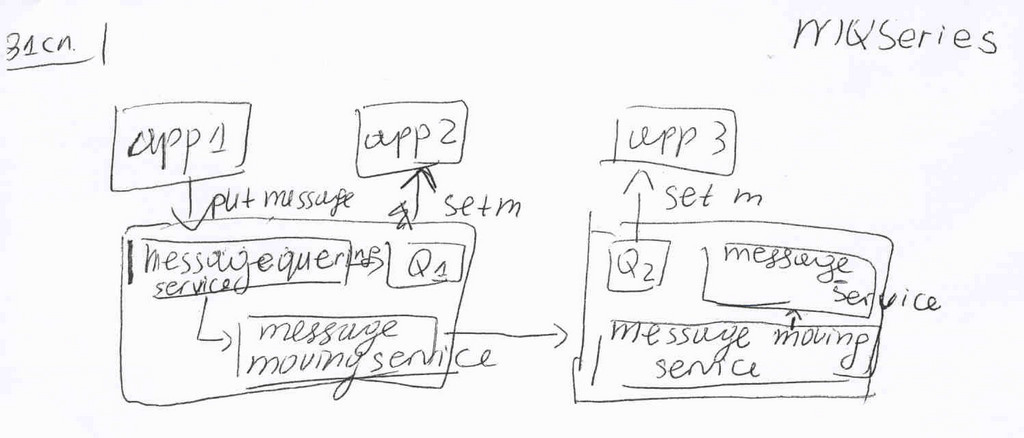 31сл.
MQSeries
app1
app2
app3
put message
setm
set m
messagequering
service
Q1
Q2
message
service
message
moving service
message moving
service